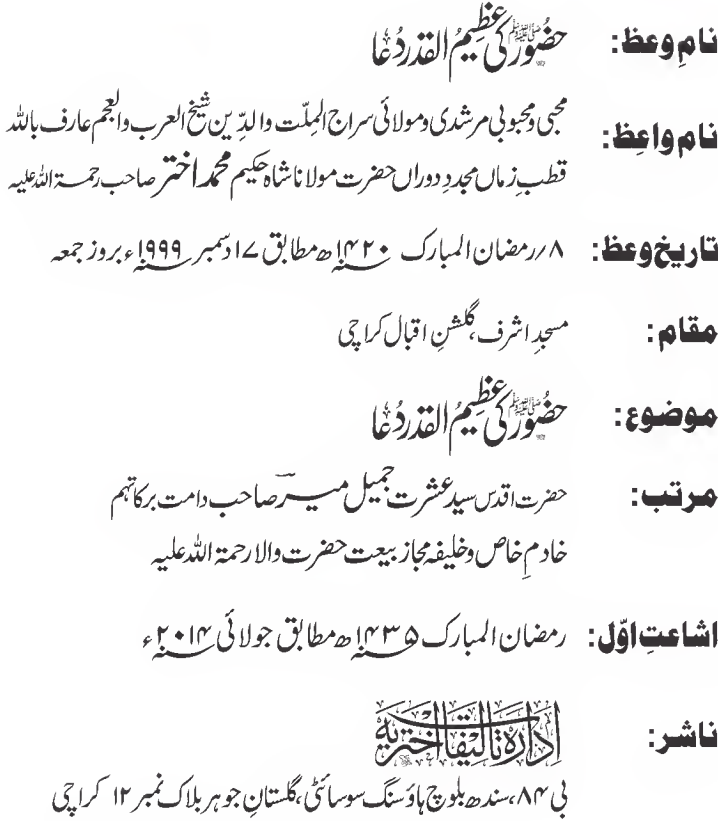 نامِ وعظ: حضُور ﷺ کی عظیمُ القدر دُعا
نام واعِظ: محبی و محبوبی مرشدی و مولائی سراج المِلّت والدّین شیخ العرب والعجم عارف باللہ
قطبِ زماں مجددِ دوراں حضرت مولانا شاہ حکیم محمد اختر صاحب رحمۃ اللہ علیہ
تاریخ وعظ: ۸؍رمضان المبارک ۱۴۲۰؁ھ مطابق ۱۷ دسمبر ۱۹۹۹؁ء بروز جمعہ
مقام: مسجدِ اشرف، گلشنِ اقبال کراچی
موضوع: حضُور ﷺ کی عظیمُ القدر دُعا
مرتب: حضرت اقدس سید عشرت جمیل میر صاحب دامت برکاتہم
خادمِ خاص و خلیفہ مجاز بیعت حضرت والا رحمۃ اللہ علیہ
اشاعتِ اوّل: رمضان المبارک ۱۴۳۵؁ھ مطابق جولائی ۲۰۱۴؁ء
ناشر: اِدارہ تالیفات اختریہ
بی ۸۴، سندھ بلوچ ہاؤسنگ سوسائٹی، گلستانِ جوہر بلاک نمبر ۱۲ کراچی